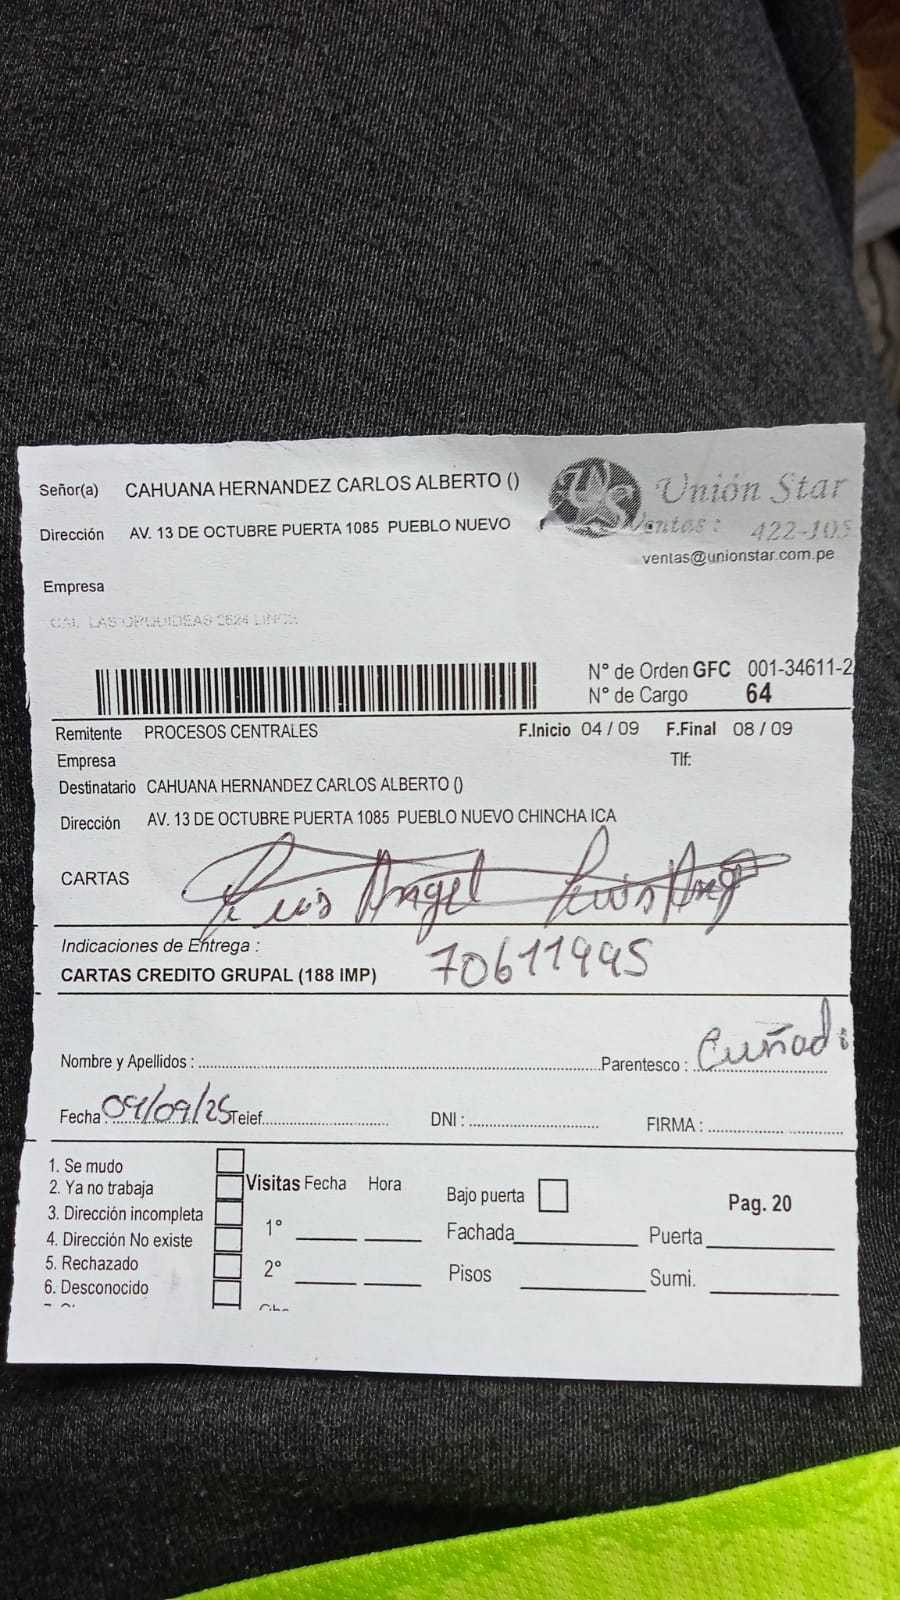 Señor(a) CAHUANA HERNANDEZ CARLOS ALBERTO ()
Unión Star
Dirección AV. 13 DE OCTUBRE PUERTA 1085 PUEBLO NUEVO
Ventas : 422-105
ventas@unionstar.com.pe
Empresa
CAL LAS ORQUIDEAS 2624 LINCE
N° de Orden GFC 001-34611-2
N° de Cargo 64
Remitente PROCESOS CENTRALES F.Inicio 04 / 09 F.Final 08 / 09
Empresa Tlf:
Destinatario CAHUANA HERNANDEZ CARLOS ALBERTO ()
Dirección AV. 13 DE OCTUBRE PUERTA 1085 PUEBLO NUEVO CHINCHA ICA
CARTAS Luis Angel Luis Ang
Indicaciones de Entrega :
CARTAS CREDITO GRUPAL (188 IMP) 70611995
Nombre y Apellidos : Parentesco : Cuñado
Fecha : 09/09/25 Telef. DNI : FIRMA :
1. Se mudo
2. Ya no trabaja Visitas Fecha Hora Bajo puerta Pag. 20
3. Dirección incompleta 1° Fachada Puerta
4. Dirección No existe
5. Rechazado 2° Pisos Sumi.
6. Desconocido